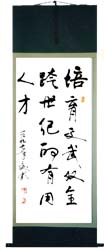 培育文武双全
跨世纪的有用
人才